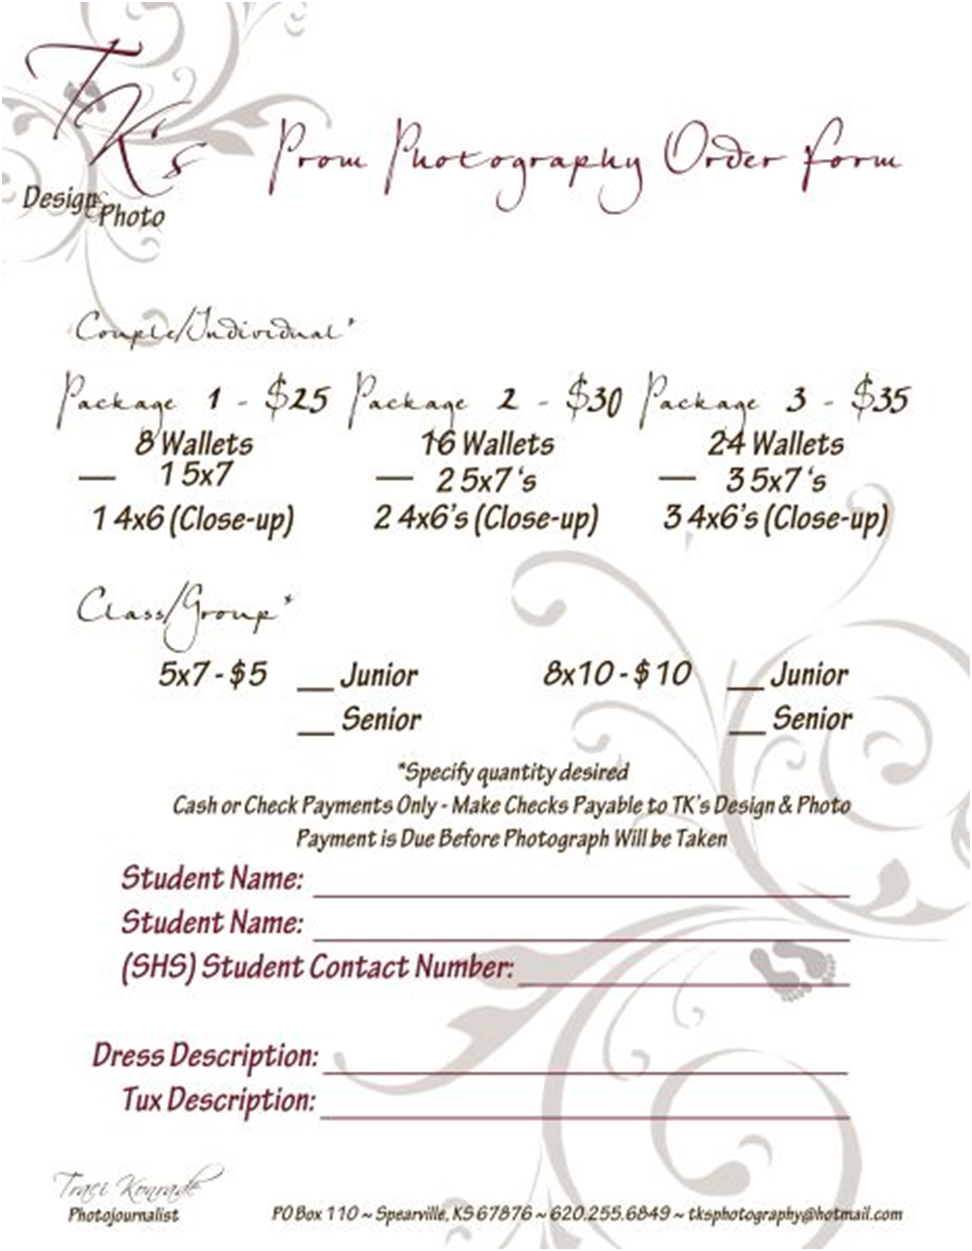 TK's
Design Photo
Prom Photography Order Form
Couple/Individual*
Package 1 - $25 Package 2 - $30 Package 3 - $35
8 Wallets 16 Wallets 24 Wallets
__ 1 5x7 __ 2 5x7's __ 3 5x7's
1 4x6 (Close-up) 2 4x6's (Close-up) 3 4x6's (Close-up)
Class/Group*
5x7 - $5 __ Junior 8x10 - $10 __ Junior
__ Senior __ Senior
*Specify quantity desired
Cash or Check Payments Only - Make Checks Payable to TK's Design & Photo
Payment is Due Before Photograph Will be Taken
Student Name:
Student Name:
(SHS) Student Contact Number:
Dress Description:
Tux Description:
Traci Konrade
Photojournalist
PO Box 110 ~ Spearville, KS 67876 ~ 620.255.6849 ~ tksphotography@hotmail.com